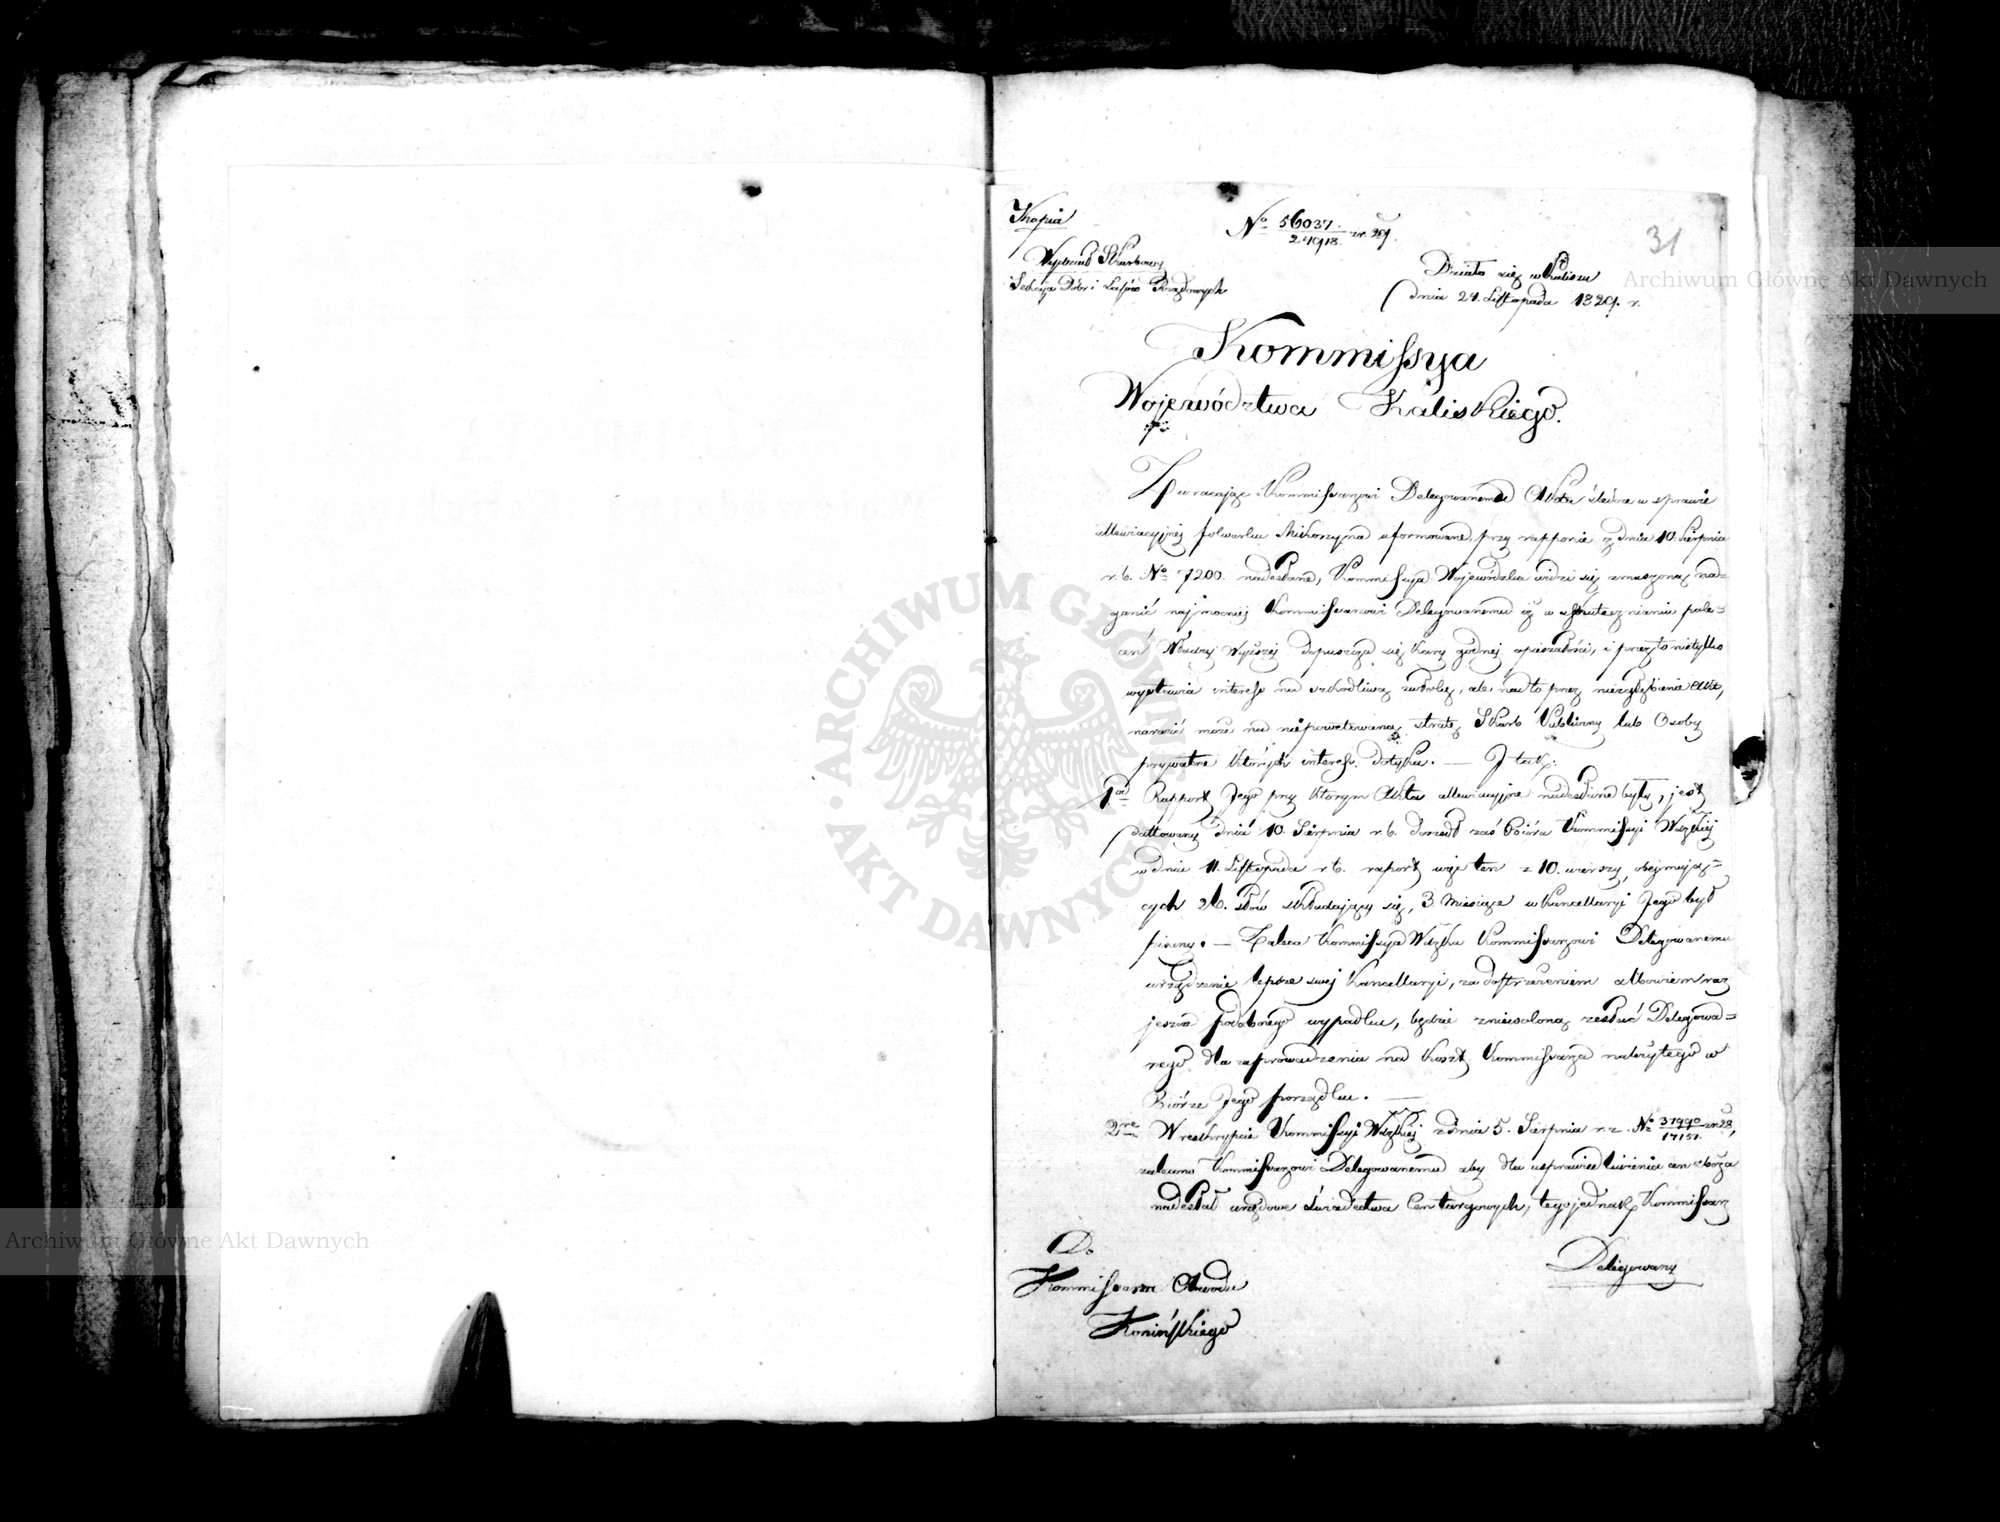 Kopia
No 56037/24918 zr. 29.
31
Wydział Skarbowy
Sekcya Dóbr i Lasów Rządowych
Działo się w Kaliszu
dnia 24. Listopada 1829. r.
Kommissya
Województwa Kaliskiego.
Zwracając Kommissarzowi Delegowanemu Akta śledcze w sprawie
allewiacyjnéj folwarku Mikorzyna uformowane, przy rapporcie z dnia 10. Sierpnia
r. b. No 7200. nadesłane, Kommissya Wojewódzka widzi się zmuszoną nad-
ganić najmocniej Kommissarzowi Delegowanemu iż w uskutecznianiu pole=
ceń Władzy Wyższej dopuszcza się kary godnej opieszałości, i przez to nietylko
wystawia interess na szkodliwą zwłokę, ale nadto przez niezgłębienie Akt,
narazić może na niepowetowaną stratę Skarb Publiczny lub Osoby
prywatne których interess dotyka. — I tak:
1od Rapport Jego przy którym Akta allewiacyjne nadesłane były, jest
dattowany dnia 10. Sierpnia r. b. doszedł zaś Bióra Kommissyi Wdzkiej
w dniu 11. Listopada r. b. raport więc ten z 10. wierszy, obejmują=
cych 26. słów składający się, 3 Miesiące w Kancellaryi Jego był
pisany. — Zaleca Kommissya Wdzka Kommissarzowi Delegowanemu
urządzenie lepsze swej Kancellaryi, za dostrzeżeniem albowiem raz
jeszcze podobnego wypadku, będzie zniewoloną zesłać Delegowa=
nego dla zaprowadzenia na koszt Kommissarza należytego w
Biórze Jego porządku. —
2re W reskrypcie Kommissyi Wdzkiej z dnia 5. Sierpnia r. z. No 37990/17151 zr. 28,
zalecono Kommissarzowi Delegowanemu aby dla usprawiedliwienia cen zboża
nadesłał urzędowe świadectwa Cen targowych, tego jednak Kommissarz
Delegowany
Do
Kommissarza Obwodu
Konińskiego
Archiwum Główne Akt Dawnych
Archiwum Główne Akt Dawnych
ARCHIWUM GŁÓWNE
AKT DAWNYCH